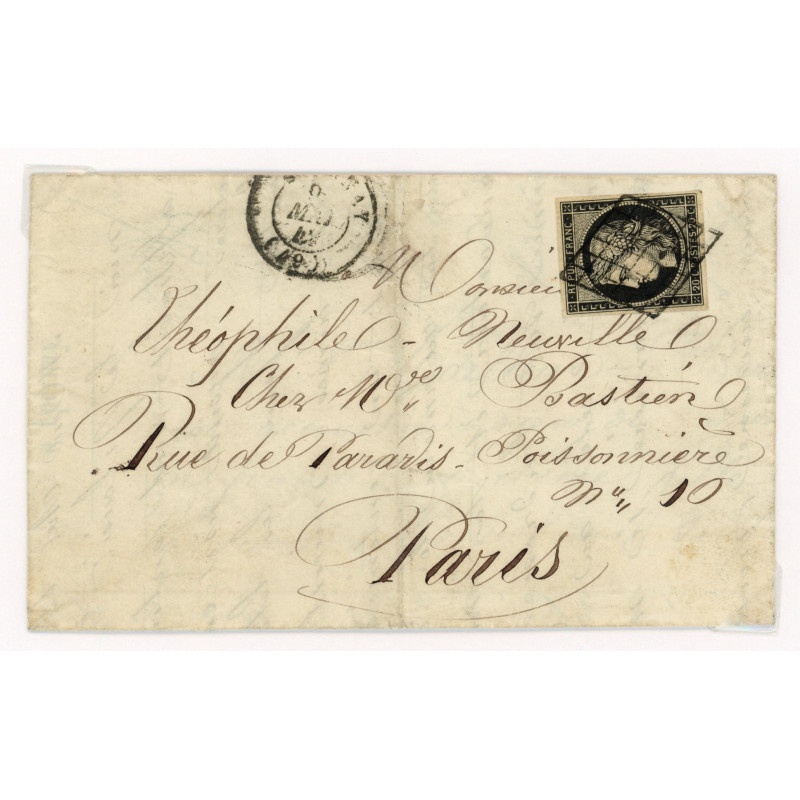 MAI
(49)
REPUB. FRANC.
20 c POSTES 20 c
Monsieu
Théophile - Neuville
Chez Mr
Bastién
Rue de Paradis - Poissonnière
No 10
Paris